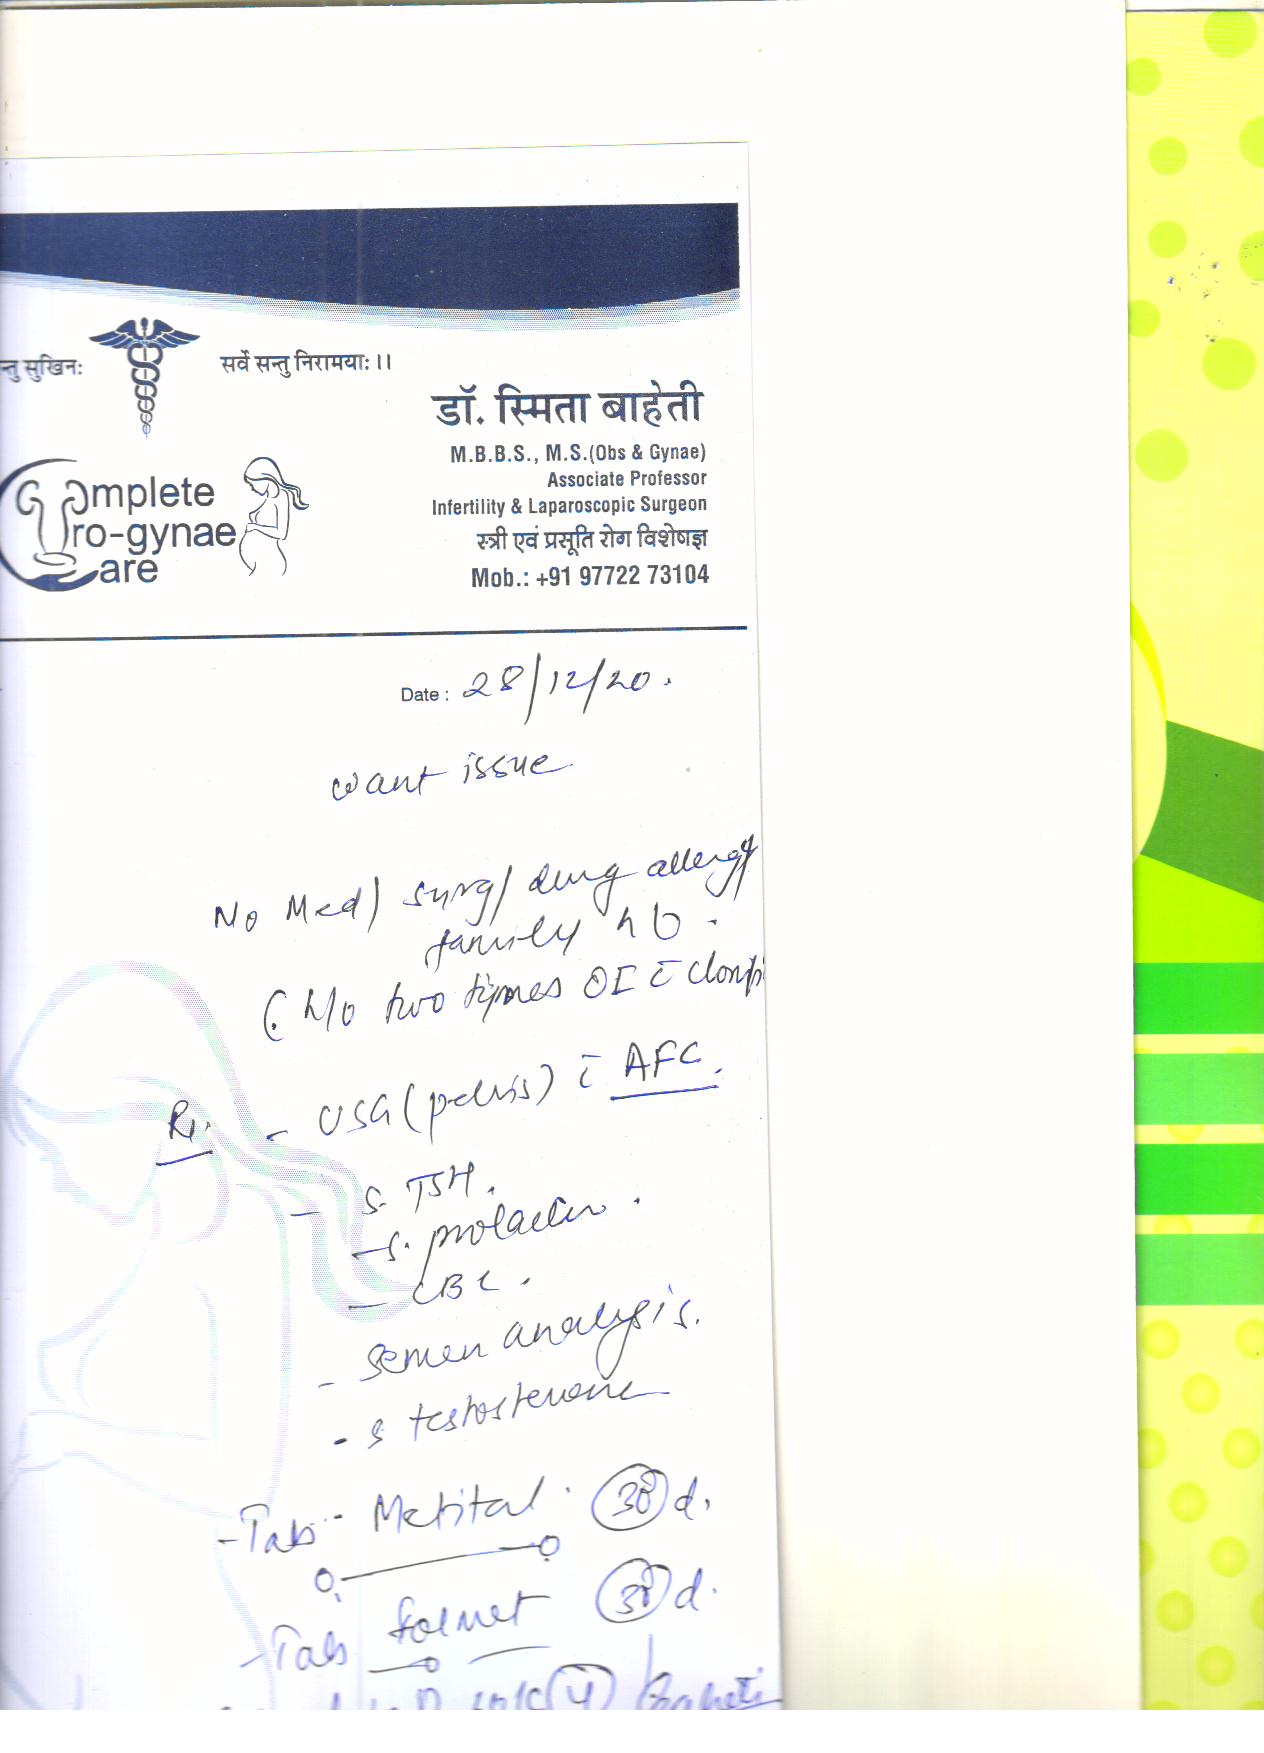 न्तु सुखिनः
सर्वे सन्तु निरामयाः ।।
डॉ. स्मिता बाहेती
M.B.B.S., M.S.(Obs & Gynae)
Associate Professor
Infertility & Laparoscopic Surgeon
स्त्री एवं प्रसूति रोग विशेषज्ञ
Mob.: +91 97722 73104
Complete
Uro-gynae
Care
Date : 28/12/20.
want issue
No Med/ surg/ drug allergy
family h/o.
(. h/o two times OI c̄
R. - USG (pelvis) c̄ AFC.
- S. TSH.
- S. prolactin.
- CBC.
- semen analysis.
- S testosterone
- Tab - Metital. 30 d.
- Tab Folnet 30 d.